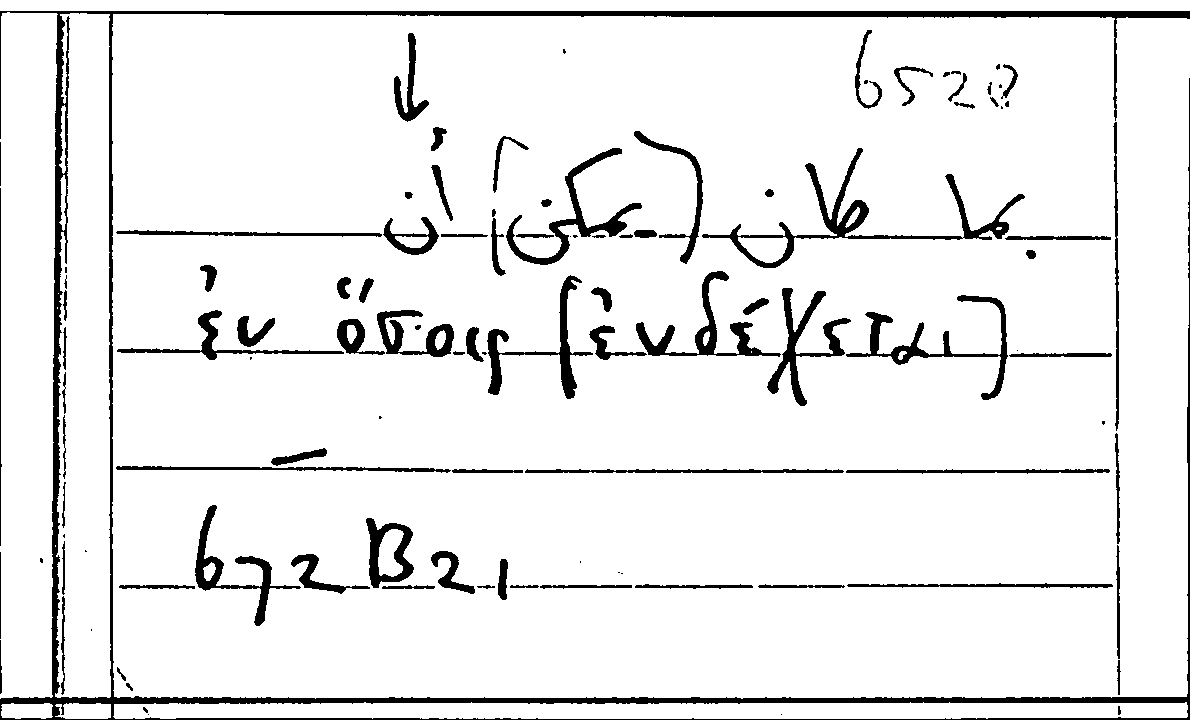 6520
بما كان (يمكن) أن
ἐν ὅσοις [ἐνδέχεται]
—
672 B 21